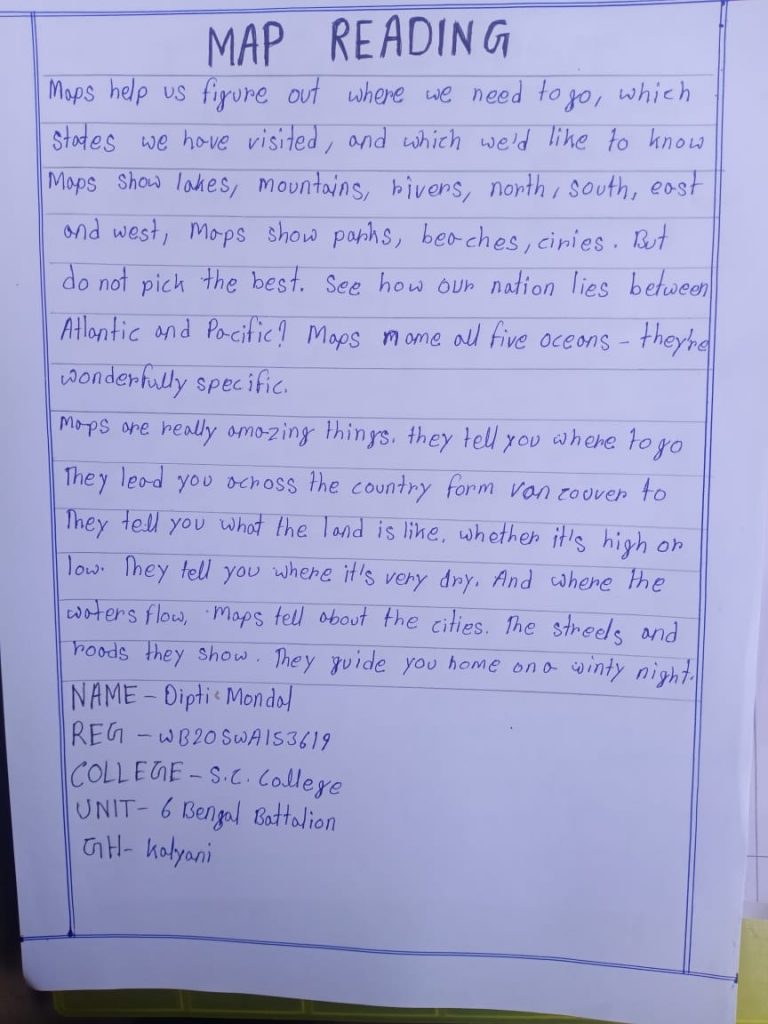 MAP READING
Maps help us figure out where we need to go, which
states we have visited, and which we'd like to know
Maps show lakes, mountains, rivers, north, south, east
and west, Maps show parks, beaches, ciries. But
do not pick the best. See how our nation lies between
Atlantic and Pacific? Maps mame all five oceans - they're
wonderfully specific.
Maps are really amazing things. they tell you where to go
They lead you across the country form van zoover to
They tell you what the land is like, whether it's high or
low. They tell you where it's very dry. And where the
waters flow, Maps tell about the cities. The streels and
roads they show. They guide you home on a winty night.
NAME - Dipti Mondal
REG - WB20SWA153619
COLLEGE - S.C. College
UNIT - 6 Bengal Battalion
GH - Kalyani